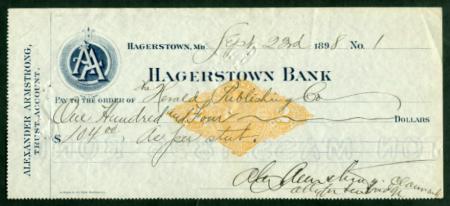 HAGERSTOWN, MD. Sept 23rd 1898 No. 1
AA
HAGERSTOWN BANK
ALEXANDER ARMSTRONG,
TRUST ACCOUNT.
PAY TO THE ORDER OF the Herald Publishing Co
One Hundred and Four DOLLARS
$ 104.00 as per stmt.
Alex Armstrong